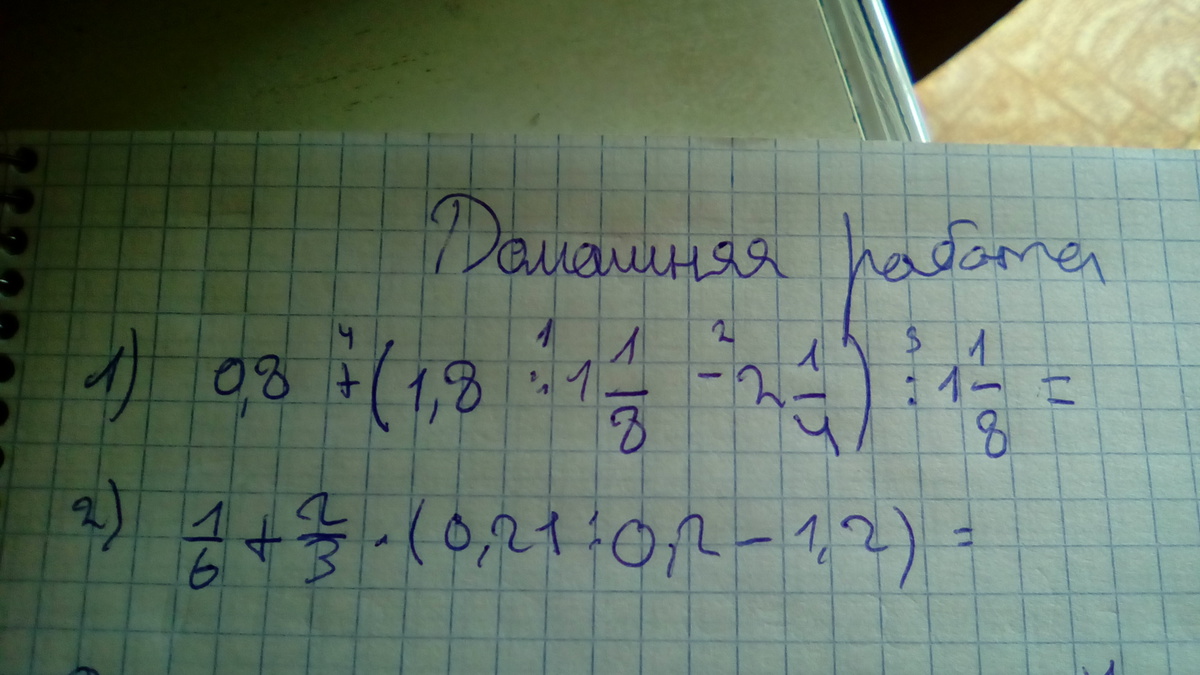 Домашняя работа
1) 0,8 + (1,8 : 1 1/8 - 2 1/4) : 1 1/8 =
2) 1/6 + 2/3 · (0,21 : 0,2 - 1,2) =